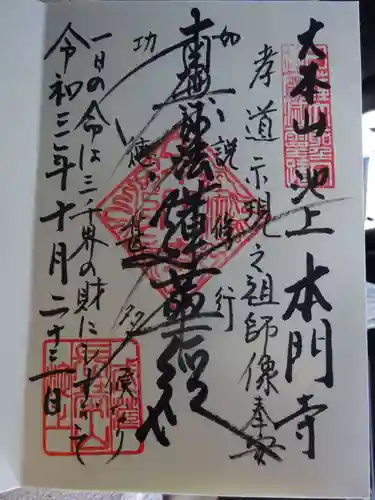 大本山 池上 本門寺
孝道示現之祖師像奉安
如説修行
南無妙法蓮華経
功徳甚多
一日の命は三千界の財にもすぎて
令和三年十月二十三日